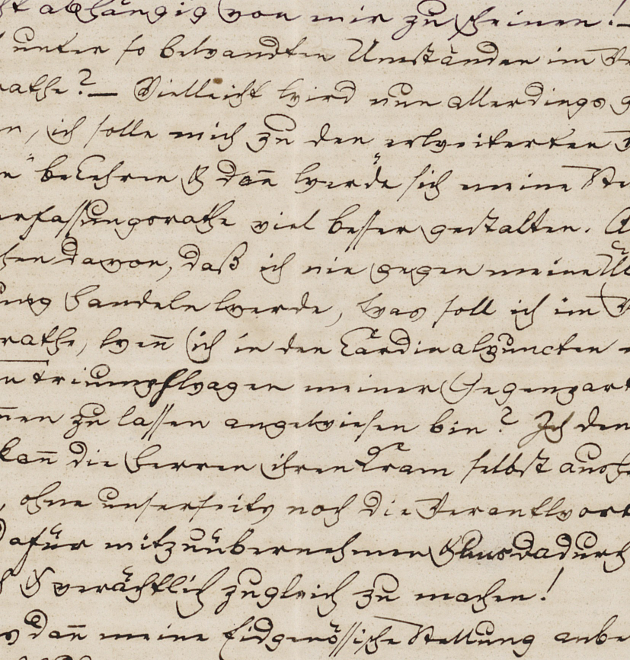 abhängig von mir zu seinen!—
unter so bewandten Umständen im
rathe?— Vielleicht wird nun allerdings
n, ich solle mich zu den erweiterten
bekehren & dan̄ werde sich meine
erfassungsrathe viel besser gestalten.
hen davon, daß ich nie gegen meine
ung handeln werde, was soll ich im
rathe, wen̄ ich in den Cardinalpuncten
n triumphwagen meiner Gegenpart
nen zu lassen angewiesen bin? Ich den
kan̄ die Herren ihren Kram selbst
, ohne unserseits noch die Verantwort
dafür mitzuübernehmen & uns dadurch
& verächtlich zugleich zu machen!
dan̄ meine eidgenössische Stellung anbe